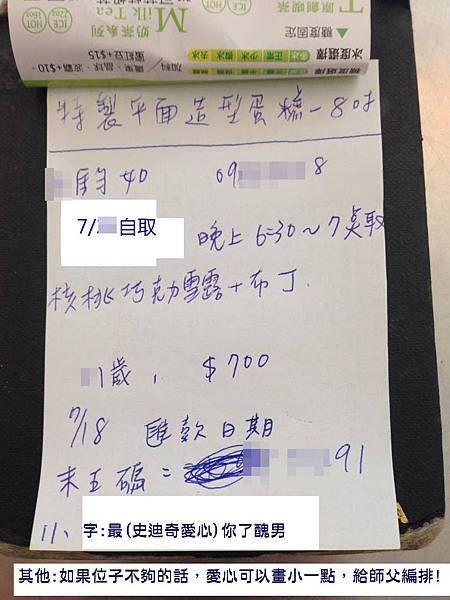 T 原創喫茶
糖度固定
奶茶系列
Milk Tea
ICE 22oz
HOT 16oz
冰度選擇 正常 少冰 微冰 去冰
蜜紅豆+$15
加料
特製平面造型蛋糕-8吋
駒如 09 8
7/ 自取 晚上6:30~7點取
核桃巧克力雪露+布丁
1歲, $700
7/18 匯款日期
末五碼= 91
11、字:最(史迪奇愛心)你了醜男
其他:如果位子不夠的話,愛心可以畫小一點,給師父編排!